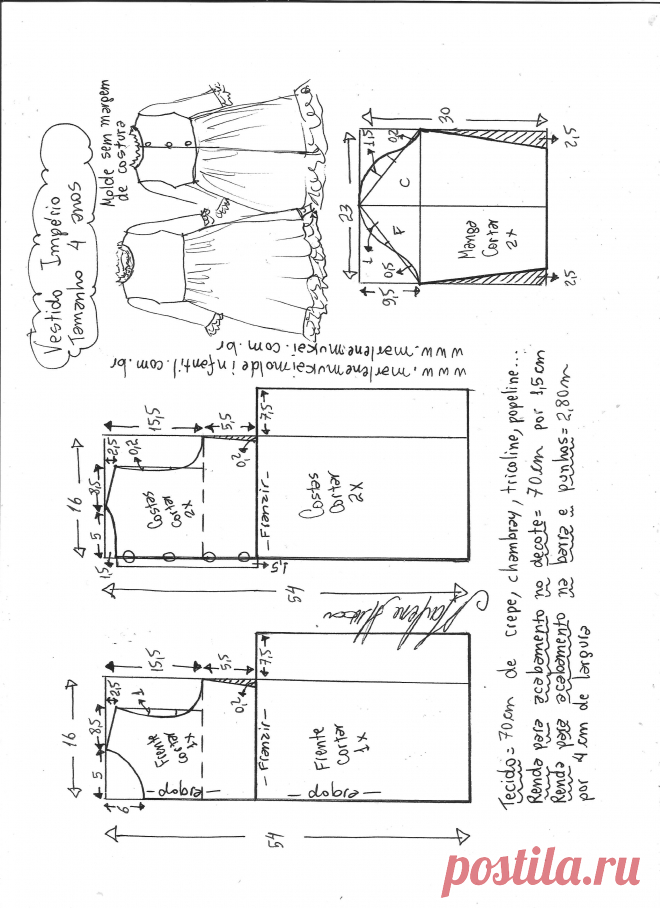 Vestido Império
Tamanho 4 anos
Molde sem margem
de costura
30
23
1,5
0,2
F
C
1
0,5
9,5
Manga
Cortar
2x
2,5
2,5
www.marlenemukai.com.br
www.marlenemukaimoldeinfantil.com.br
16
5
8,5
2,5
15,5
5,5
7,5
0,2
0,2
1,5
Costas
cortar
2x
—Franzir—
Costas
cortar
2x
1,5
54
16
5
8,5
2,5
15,5
5,5
7,5
1
0,2
6
Frente
cortar
1x
—dobra—
—Franzir—
Frente
Cortar
1x
—dobra—
54
Tecido = 70cm de crepe, chambray, tricoline, popeline...
Renda para acabamento no decote = 70cm por 1,5cm
Renda para acabamento na barra e punhos = 2,80m
por 4 cm de largura
postila.ru